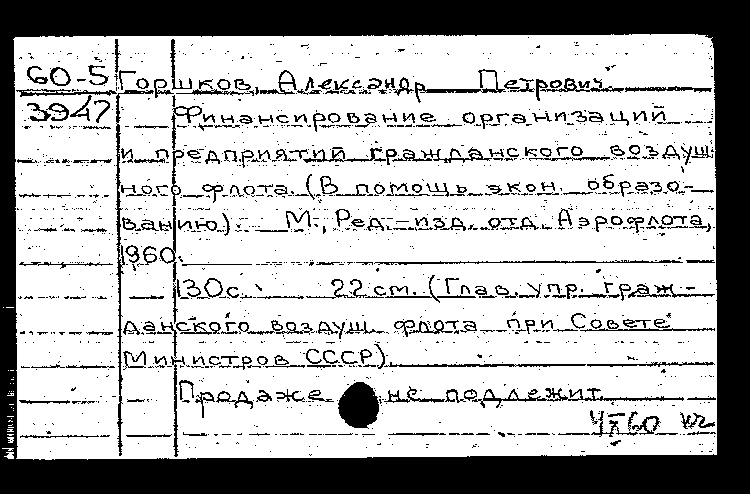 60-5 Горшков, Александр Петрович.
3947 Финансирование организаций
и предприятий гражданского воздуш
ного флота. (В помощь экон. образо-
ванию). М., Ред.-изд. отд. Аэрофлота,
1960.
130с. 22 см. (Глав. упр. граж-
данского воздуш. флота при Совете
Министров СССР).
Продаже не подлежит.